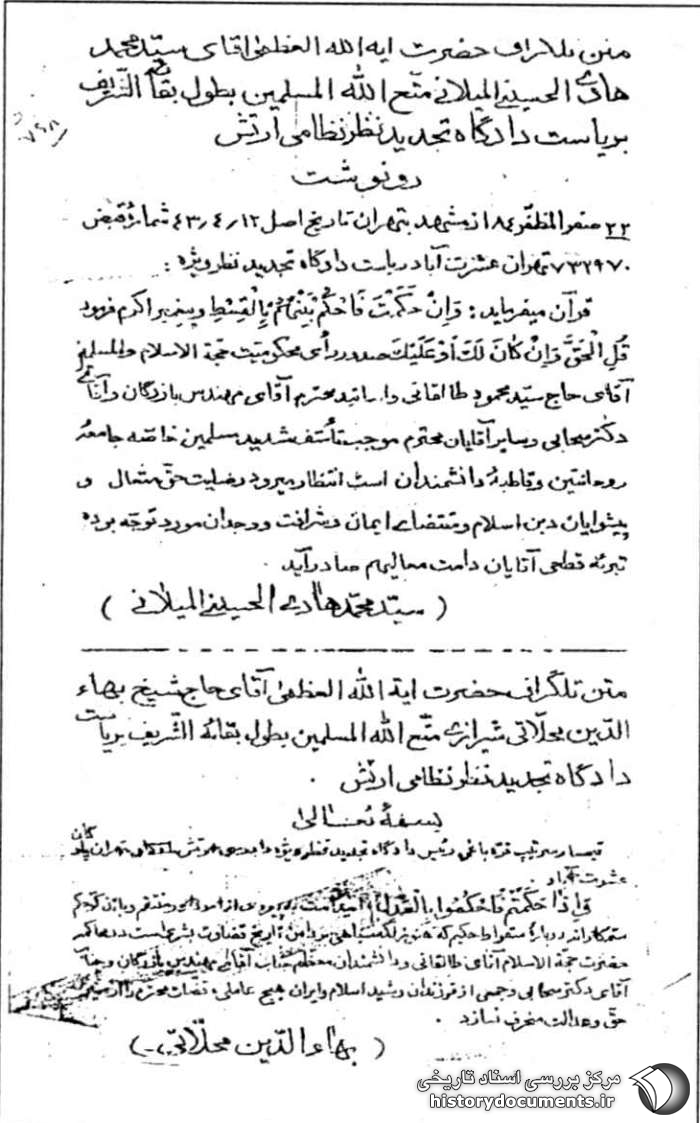 متن تلگراف حضرت ایه الله العظمی اقای سیّد محمد
هادی الحسینی المیلانی متّع الله المسلمین بطول بقائه الشّریف
بریاست دادگاه تجدید نظر نظامی ارتش
۷۶۸
رونوشت
۲۲ صفر المظفّر ۸۴ از مشهد بتهران تاریخ اصل ۴۳٫۴٫۱۲ شمارهٔ قبض
۷۳۲۹۷۰ تهران عشرت آباد ریاست دادگاه تجدید نظر ویژه :
قرآن میفرماید : وَاِنْ حَكَمْتَ فَاحْكُمْ بَیْنَهُمْ بِالْقِسْطِ وپیغمبر اکرم فرمود
قُلِ الْحَقَّ وَاِنْ كَانَ لَكَ اَوْ عَلَیْكَ صدور رأی محکومیت حجّة الاسلام والمسلمین
آقای حاج سیّد محمود طالقانی و اساتید محترم آقای مهندس بازرگان و آقای
دکتر سحابی وسایر آقایان محترم موجب تأسّف شدید مسلمین خاصّه جامعهٔ
روحانیّین و قاطبهٔ دانشمندان است انتظار میرود رضایت حقّ متعال و
پیشوایان دین اسلام و مقتضای ایمان و شرافت و وجدان مورد توجّه بوده
تبرئه قطعی آقایان دامت معالیهم صادر آید .
( سیّد محمّد هادی الحسینی المیلانی )
متن تلگرافی حضرت ایة الله العظمی آقای حاج شیخ بهاء
الدّین محلّاتی شیرازی متّع الله المسلمین بطول بقائه الشّریف بریاست
دادگاه تجدید نظر نظامی ارتش .
بسمه تعالی
تیمسار سرتیپ قره باغی رئیس دادگاه تجدید نظر ویژه تهران پادگان
عشرت آباد .
وَاِذَا حَكَمْتُمْ فَاحْكُمُوا بِالْعَدْلِ امید است از
ستمکارانه دربارهٔ سقراط حکیم که هنوز لکهٔ سیاهی بر دامن تاریخ قضاوت بشری است در محاکمهٔ
حضرت حجّة الاسلام آقای طالقانی و دانشمندان معظّم جناب آقای مهندس بازرگان و جناب
آقای دکتر سحابی و جمعی از فرزندان رشید اسلام و ایران هیچ عاملی قضات محترم را از مسیر
حقّ وعدالت منحرف نسازد .
( بهاء الدّین محلّاتی )
مرکز بررسی اسناد تاریخی
historydocuments.ir